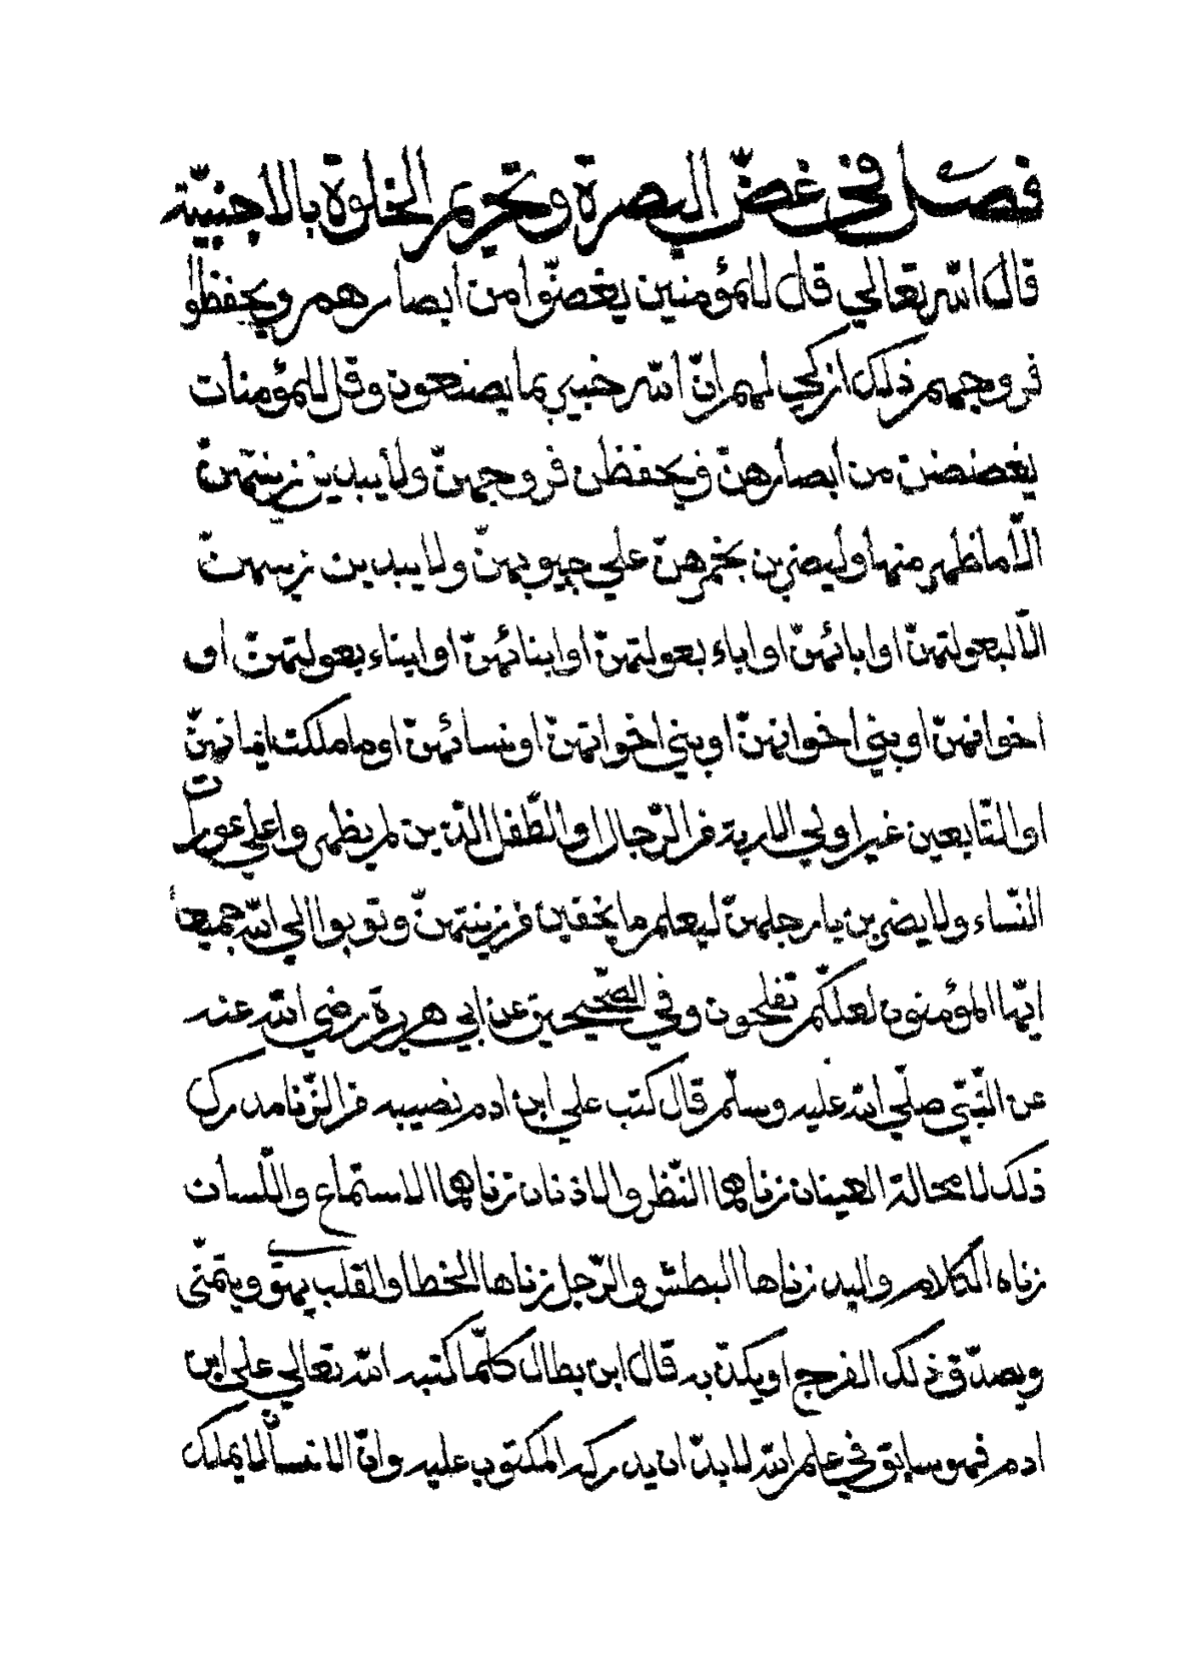 فصل في غضّ البصرة وتحريم الخلوة بالاجنبيّة
قال الله تعالي قل للمؤمنين يغضّوا من ابصارهم ويحفظوا
فروجهم ذلك ازكي لهم انّ الله خبير بما يصنعون وقل للمؤمنات
يغضضن من ابصارهنّ ويحفظن فروجهنّ ولا يبدين زينتهنّ
الّا ما ظهر منها وليضربن بخمرهنّ علي جيوبهنّ ولا يبدين زينتهنّ
الّا لبعولتهنّ او ابائهنّ او اباء بعولتهنّ او ابنائهنّ او ابناء بعولتهنّ او
اخوانهنّ او بني اخوانهنّ او بني اخواتهنّ او نسائهنّ او ما ملكت ايمانهنّ
او التّابعين غير اولي الاربة من الرّجال او الطّفل الّذين لم يظهروا علي عورات
النّساء ولا يضربن بارجلهنّ ليعلم ما يخفين من زينتهنّ وتوبوا الي الله جميعاً
ايّها المؤمنون لعلّكم تفلحون وفي الصّحيحين عن ابي هريرة رضي الله عنه
عن النّبيّ صلّي الله عليه وسلّم قال كتب علي ابن ادم نصيبه من الزّنا مدرك
ذلك لا محالة العينان زناهما النّظر والاذنان زناهما الاستماع واللّسان
زناه الكلام واليد زناها البطش والرّجل زناها الخطا والقلب يهوي ويتمنّي
ويصدّق ذلك الفرج او يكذّبه قال ابن بطال كلّما كتبه الله تعالي علي ابن
ادم فهو سابق في علم الله لا بدّ ان يدركه المكتوب عليه وانّ الانسان لا يملك